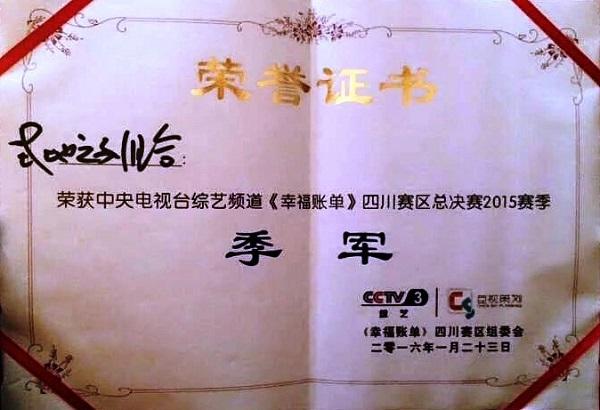 荣誉证书
荣获中央电视台综艺频道《幸福账单》四川赛区总决赛2015赛季
季军
CCTV 3
综艺
《幸福账单》四川赛区组委会
二零一六年一月二十三日